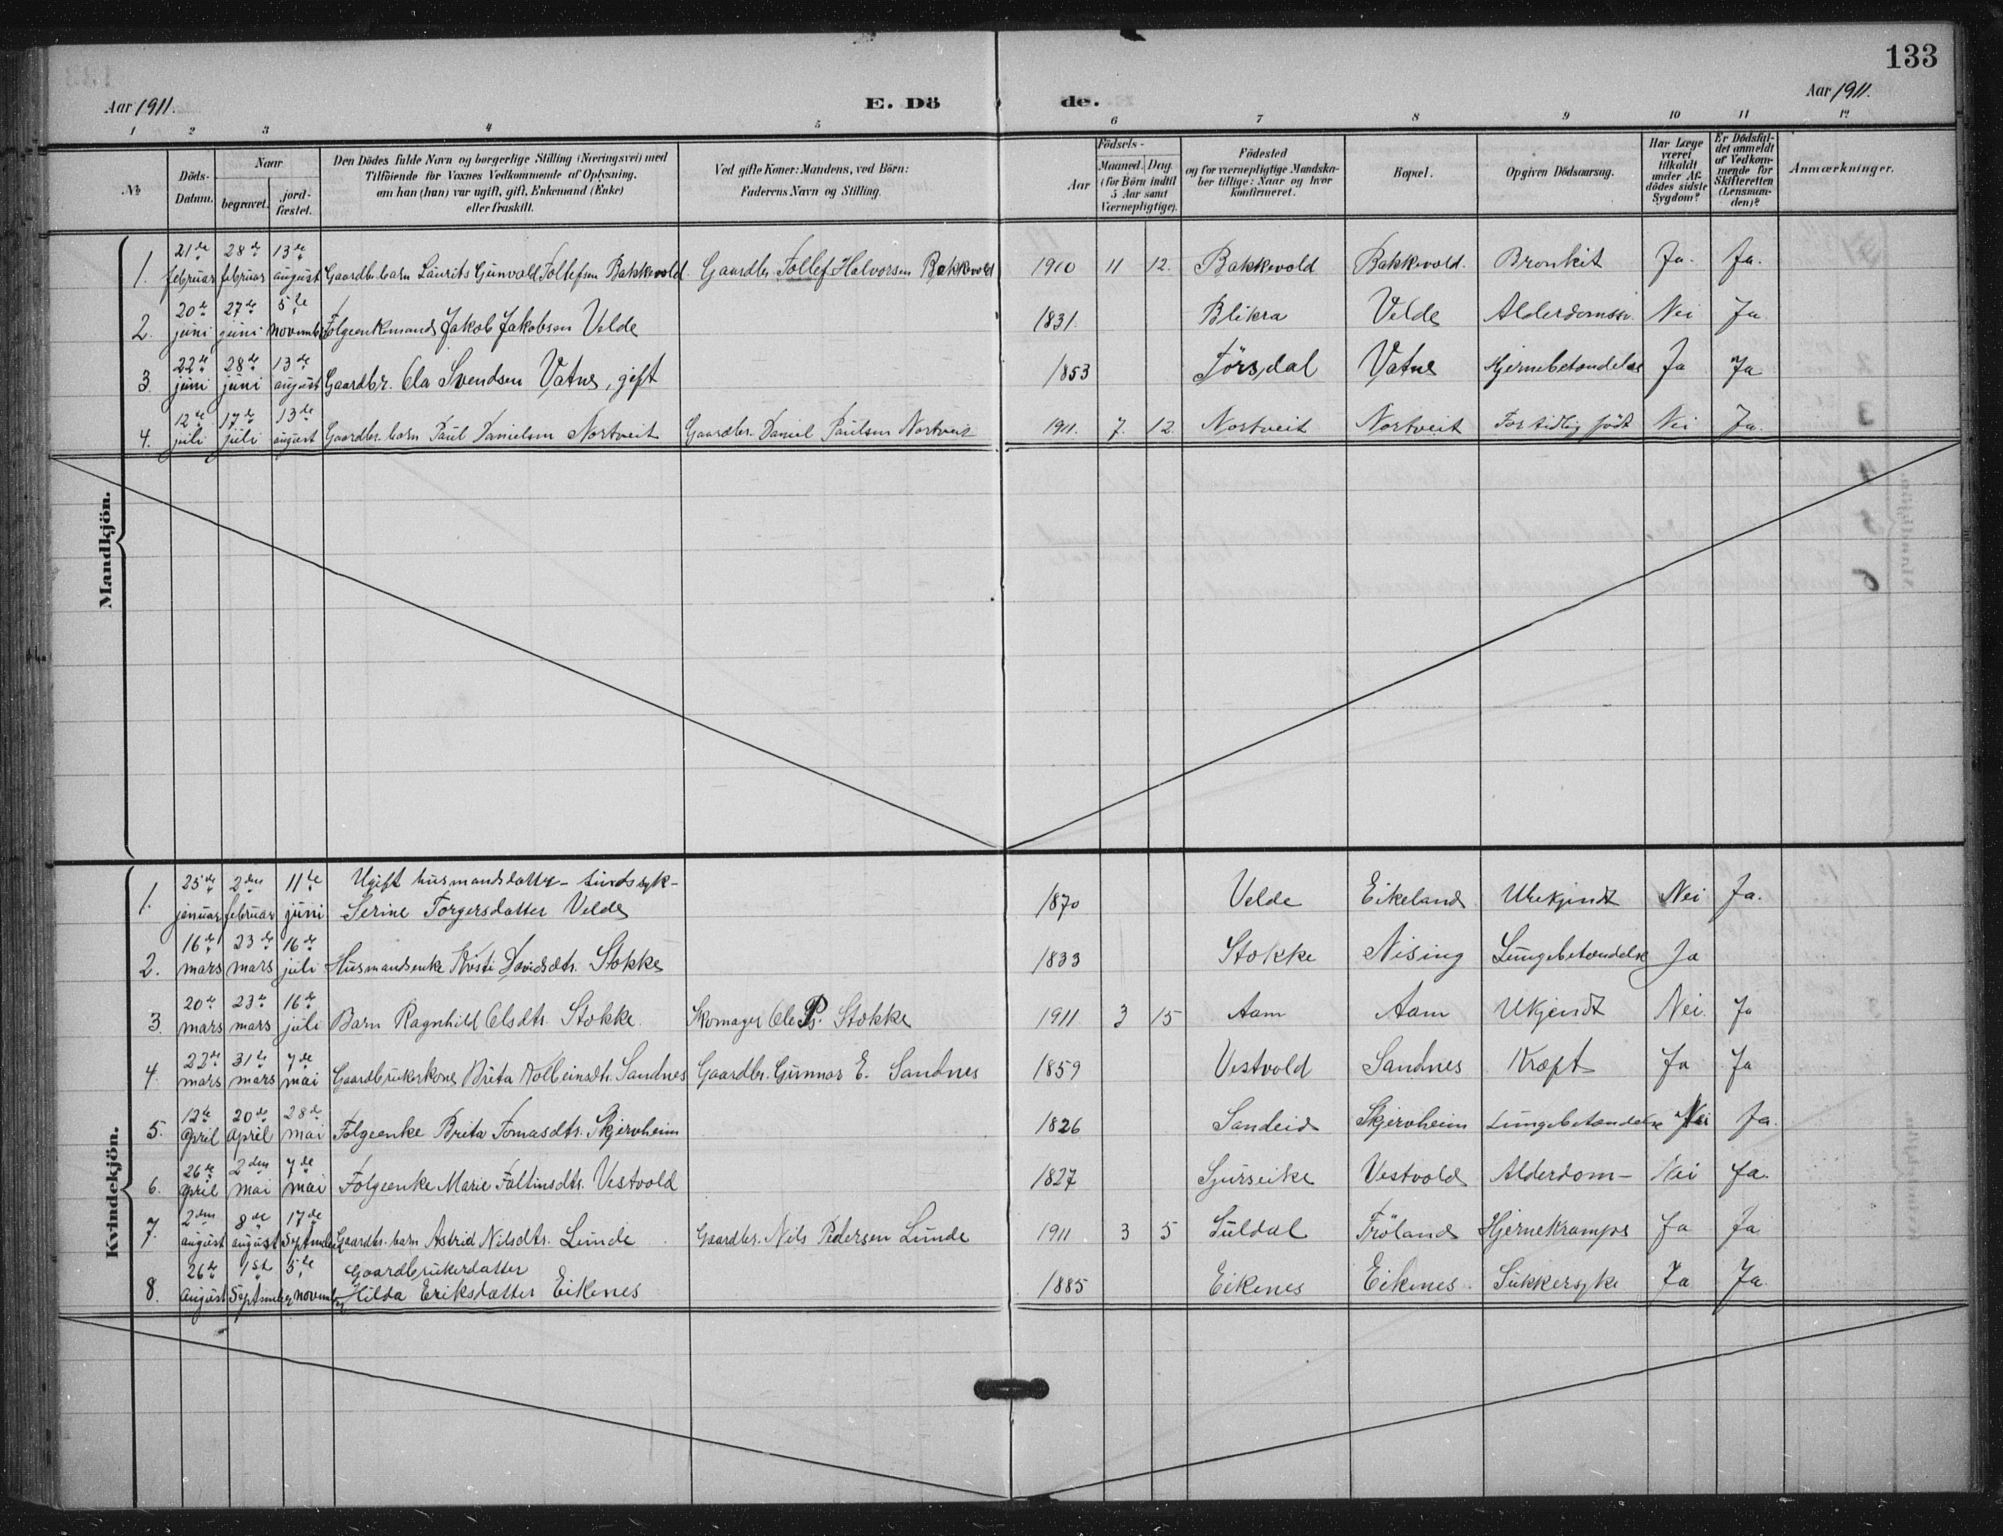 133
Aar 1911. E. Dö de. Aar 1911.
1 2 3 4 5 6 7 8 9 10 11 12
No
Döds-Datum.
Naar
begravet.
jord-fæstet.
Den Dödes fulde Navn og borgerlige Stilling (Næringsvei) med
Tilföiende for Voxnes Vedkommende af Oplysning,
om han (hun) var ugift, gift, Enkemand (Enke)
eller fraskilt.
Ved gifte Koner: Mandens, ved Börn:
Faderens Navn og Stilling.
Födsels-
Aar
Maaned. Dag.
(for Börn indtil
5 Aar samt
Værnepligtige).
Födested
og for værnepligtige Mandska-
ber tillige: Naar og hvor
konfirmeret.
Bopæl.
Opgiven Dödsaarsag.
Har Læge
været
tilkaldt
under Af-
dödes sidste
Sygdom?
Er Dödsfal-
det anmeldt
af Vedkom-
mende for
Skifteretten
(Lensman-
den)?
Anmærkninger.
Mandkjön.
1. 21de februar 28de februar 13de august Gaardbr. barn Laurits Gunvald Tollefsen Bakkevold Gaardbr. Tollef Halvorsen Bakkevold 1910 11 12. Bakkevold Bakkevold. Bronkit Ja. Ja.
2. 20de juni 27de juni 5te november Følgeenkemand Jakob Jakobsen Velde 1831. Blikra Velde Alderdomssv. Nei Ja
3 22de juni 28de juni 13de august Gaardbr. Ola Svendsen Vatne, gift 1853 Tørsdal Vatne Hjernebetændelse Ja Ja
4. 12te juli 17de juli 13de august Gaardbr. barn Paul Danielsen Nortveit Gaardbr. Daniel Paulsen Nortveit 1911. 7. 12. Nortveit Nortveit For tidlig født Nei Ja.
Kvindekjön.
1. 25de januar 2den februar 11te juni Ugift husmandsdatter - sindssyk - Serine Torgersdatter Velde 1870 Velde Eikeland Ukjendt Nei Ja.
2. 16de mars 23de mars 16de juli Husmandsenke Kristi Davidsdtr. Stokke 1833 Stokke Nising Lungebetændelse Ja
3. 20de mars 23de mars 16de juli Barn Ragnhild Olsdtr. Stokke. Skomager Ole P. Stokke 1911 3 15 Aam Aam Ukjendt Nei. Ja
4. 22de mars 31te mars 7de mai Gaardbrukerkone Brita Kolbeinsdtr. Sandnes Gaardbr. Gunnar E. Sandnes 1859 Vestvold Sandnes Kræft Ja Ja
5. 12te april 20de april 28de mai Følgeenke Brita Tomasdtr. Skjervheim 1826 Sandeid Skjervheim Lungebetændelse Nei Ja.
6. 26te april 2den mai 7de mai Følgeenke Marie Faltinsdtr. Vestvold 1827 Sjurseike Vestvold Alderdom- Nei Ja.
7. 2den august 8de august 17de September Gaardbr. barn Astrid Nilsdtr. Lunde Gaardbr. Nils Pedersen Lunde 1911 3 5 Suldal Frøland Hjernekrampe Ja Ja
8. 26te august 1st September 5te november Gaardbrukerdatter Hilda Eriksdatter Eikenes 1885 Eikenes Eikenes. Sukkersyke Ja Ja